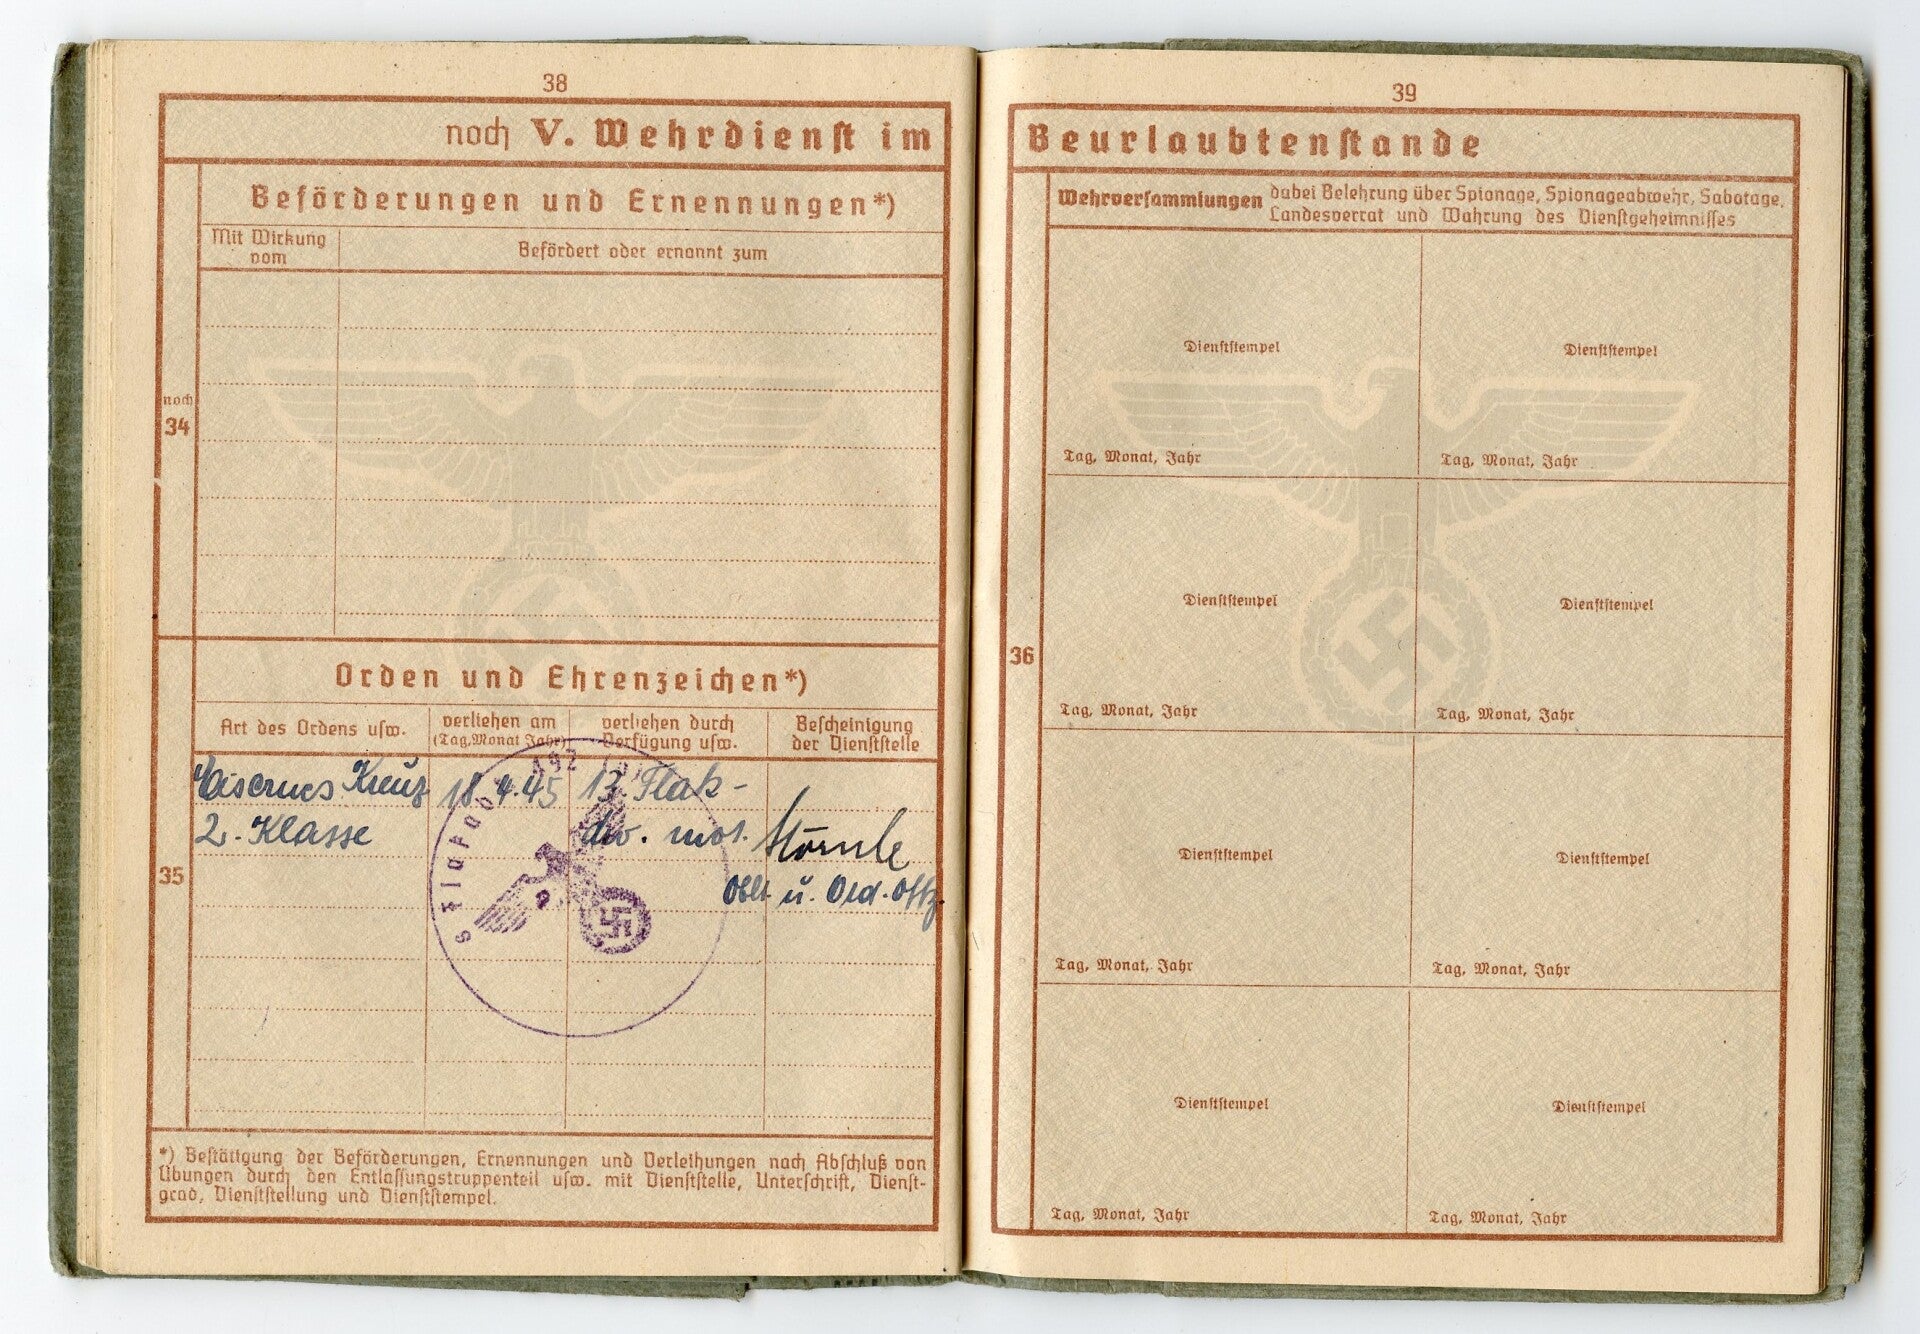 38
noch V. Wehrdienst im
Beförderungen und Ernennungen*)
Mit Wirkung vom
Befördert oder ernannt zum
noch
34
Orden und Ehrenzeichen*)
Art des Ordens usw.
verliehen am
(Tag, Monat Jahr)
verliehen durch
Verfügung usw.
Bescheinigung
der Dienststelle
Eisernes Kreuz 18.4.45 13. Flak-
2. Klasse div. mot.
Oblt. u. Ord. Offz.
35
*) Bestätigung der Beförderungen, Ernennungen und Verleihungen nach Abschluß von
Übungen durch den Entlassungstruppenteil usw. mit Dienststelle, Unterschrift, Dienst-
grad, Dienststellung und Dienststempel.
39
Beurlaubtenstande
Wehrversammlungen dabei Belehrung über Spionage, Spionageabwehr, Sabotage,
Landesverrat und Wahrung des Dienstgeheimnisses
Dienststempel Dienststempel
Tag, Monat, Jahr Tag, Monat, Jahr
Dienststempel Dienststempel
36
Tag, Monat, Jahr Tag, Monat, Jahr
Dienststempel Dienststempel
Tag, Monat, Jahr Tag, Monat, Jahr
Dienststempel Dienststempel
Tag, Monat, Jahr Tag, Monat, Jahr